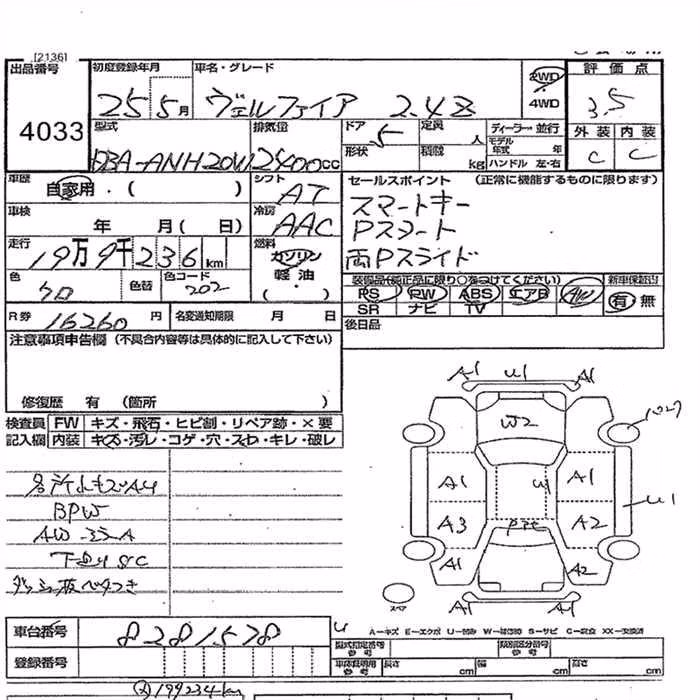 [2136]
出品番号 4033
初度登録年月 25 5月
車名・グレード ヴェルファイア 2.4Z
2WD・4WD
評価点 3.5
外装 内装
C C
型式 DBA-ANH20W
排気量 2400cc
ドア 5
形状
定員 人
積載 kg
ディーラー・並行
モデル年式 年
ハンドル 左・右
車歴 自家用・( )
シフト AT
車検 年 月( 日)
冷房 AAC
走行 19万9千236km
燃料 ガソリン 軽油 ・( )
色 クロ
色替
色コード 202
セールスポイント (正常に機能するものに限ります)
スマートキー
Pスタート
両Pスライド
装備品(純正品に限り○をつけてください)
PS PW ABS エアB AW
SR ナビ TV
新車保証書
有 無
後日品
R券 16260円
名変通知期限 月 日
注意事項申告欄 (不具合内容等は具体的に記入して下さい)
修復歴 有 (箇所 )
検査員記入欄
FW キズ・飛石・ヒビ割・リペア跡・×要
内装 キズ・汚レ・コゲ・穴・スレ・キレ・破レ
BPW
ダッシュ板ベタつき
A1 U1 A1
W2
A1 U1 A1
A3 A2 U1
A1 A2
スペア
A1 A1
車台番号 8281578
登録番号
A-キズ E-エクボ U-凹み W-補修跡 S-サビ C-腐食 XX-交換済
型式指定番号 参考
類別区分番号 参考
車体証明用 参考 長さ cm 幅 cm 高さ cm
199234km